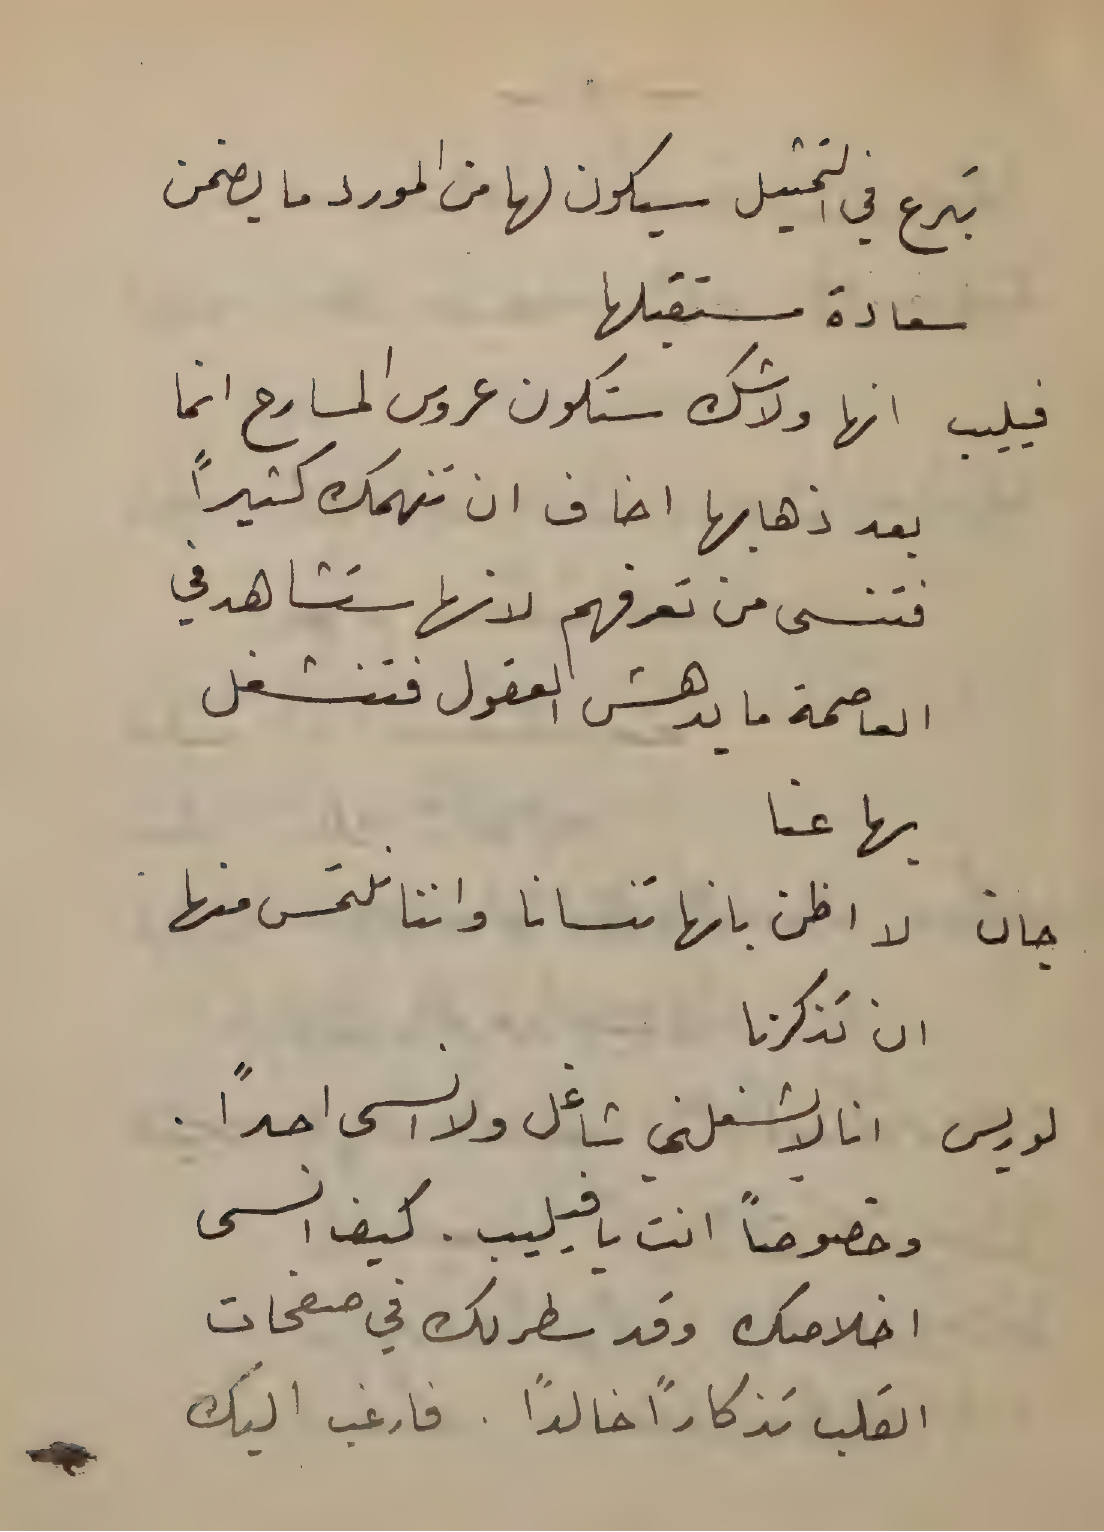 تبرع في التمثيل سيكون لها من المورد ما يضمن
سعادة مستقبلها
فيليب انها ولاشك ستكون عروس المسارح انما
بعد ذهابها اخاف ان تنهمك كثيراً
فتنسى من تعرفهم لانها ستشاهد في
العاصمة ما يدهش العقول فتنشغل
بها عنا
جان لا اظن بانها تنسانا واننا نلتمس منها
ان تذكرنا
لوريس انا لا يشغلني شاغل ولا انسى احداً .
وخصوصاً انت يا فيليب . كيف انسى
اخلاصك وقد سطر لك في صفحات
القلب تذكاراً خالداً . فارغب اليك